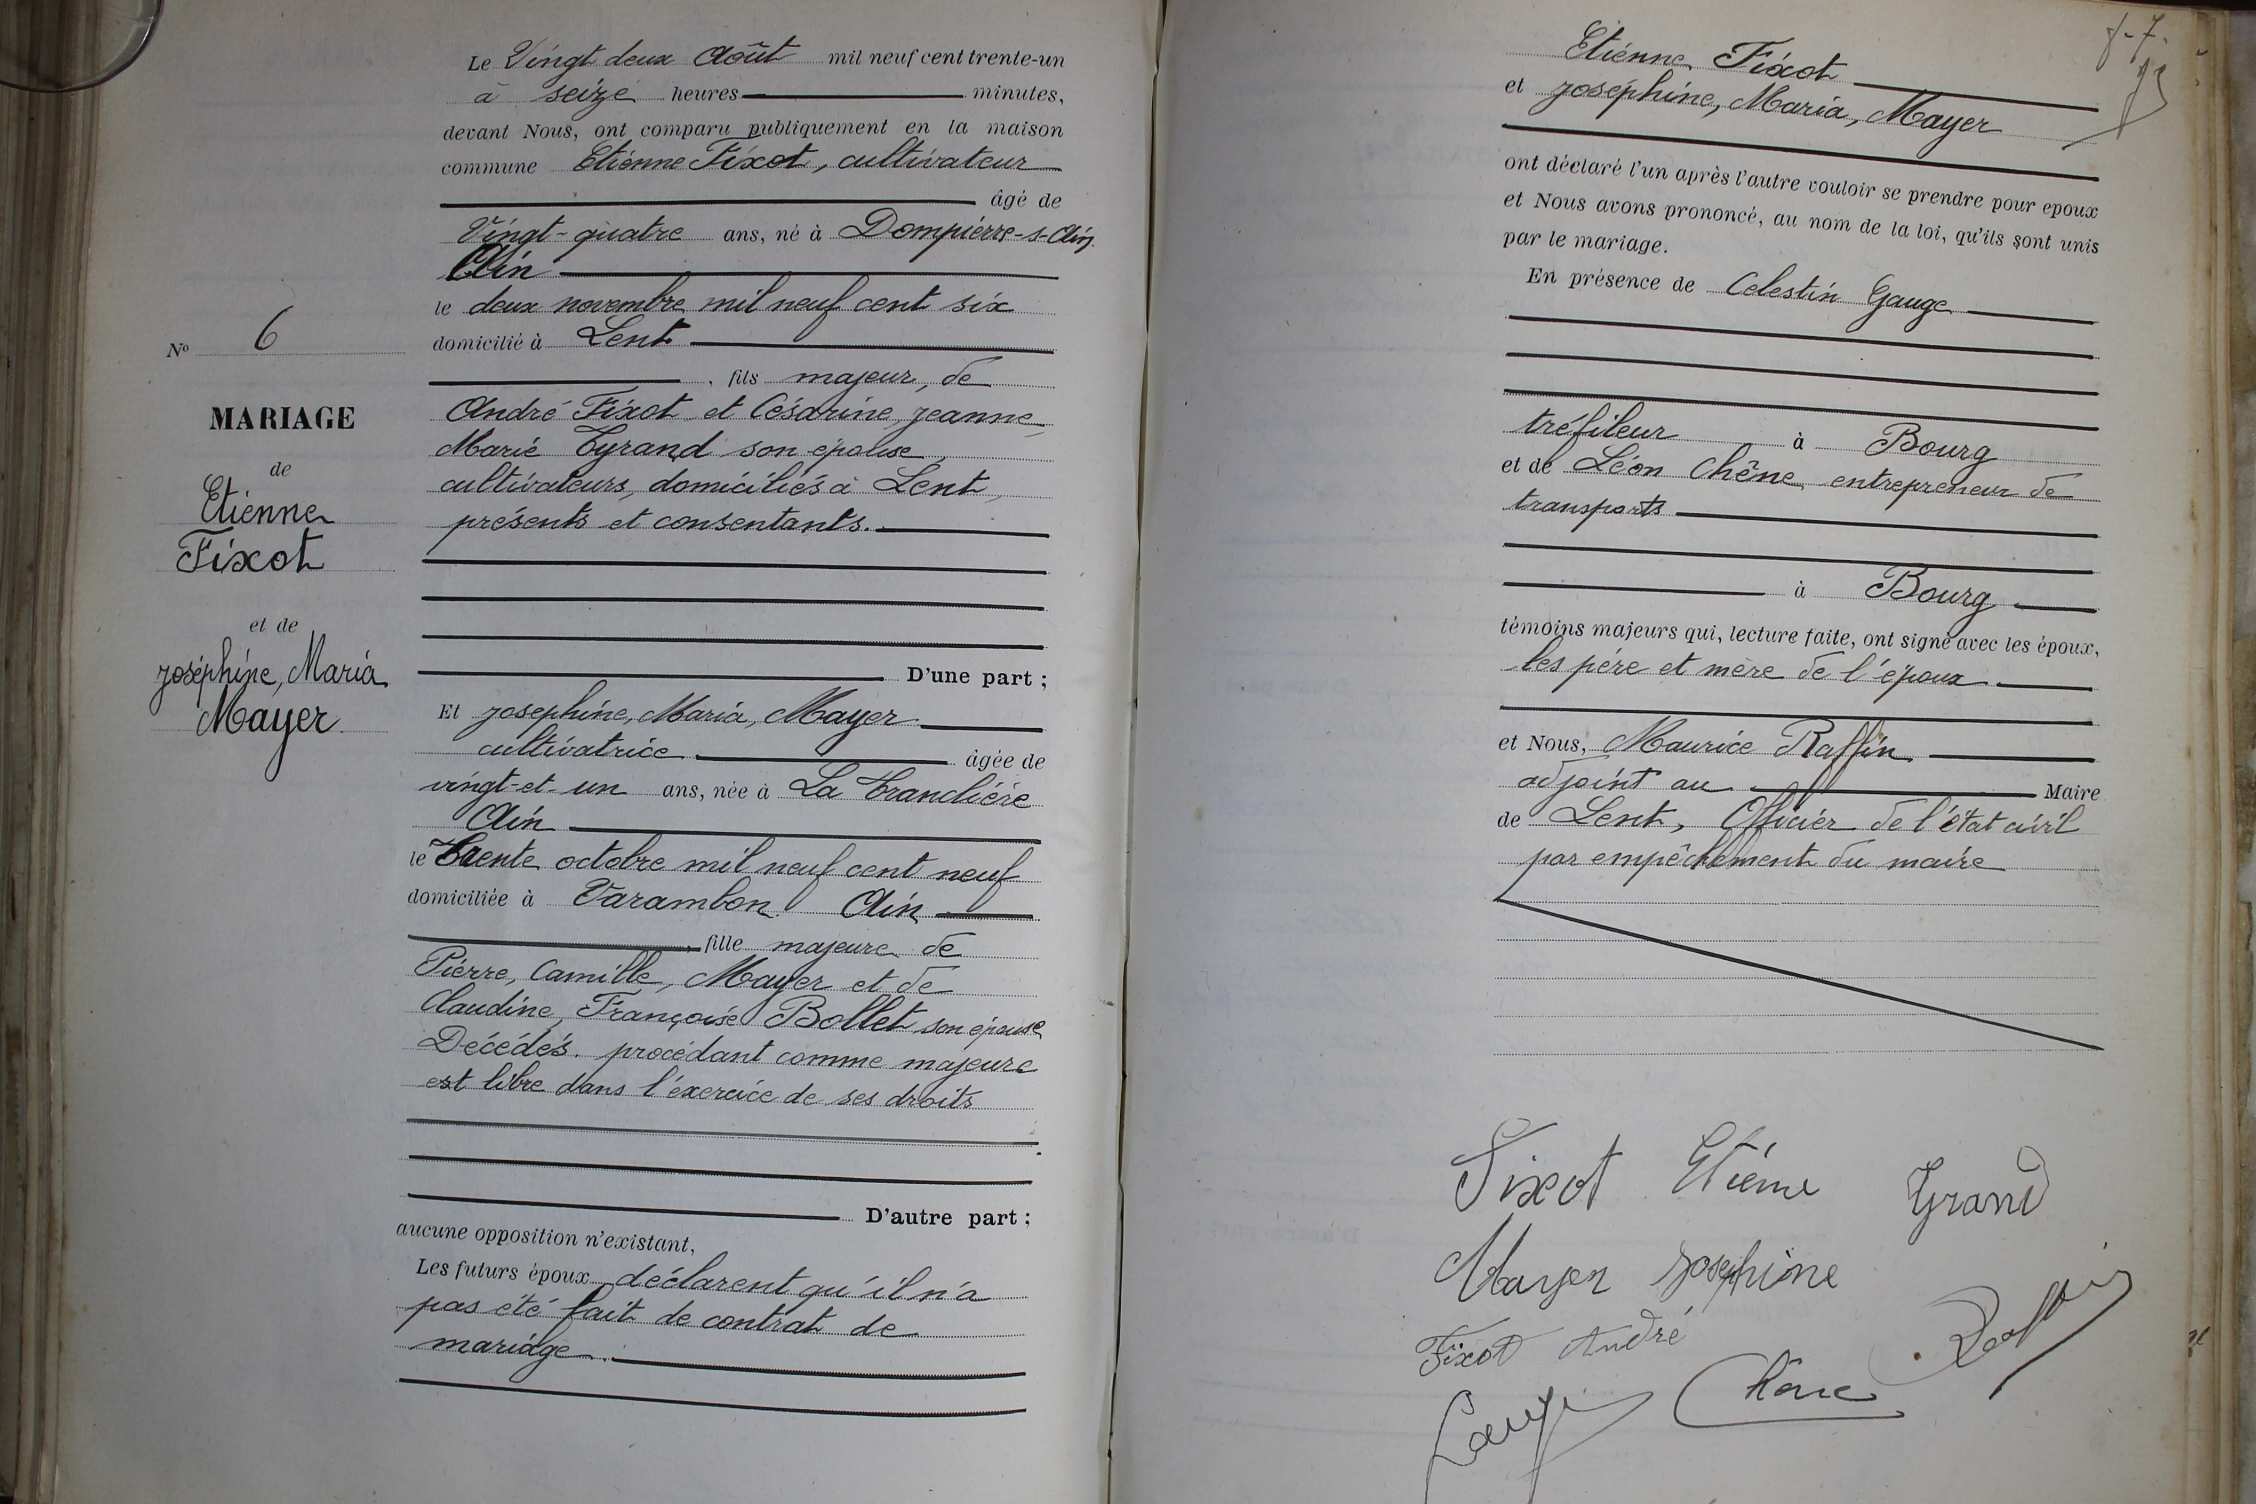 Le Vingt deux Août mil neuf cent trente-un
à seize heures minutes,
devant Nous, ont comparu publiquement en la maison
commune Etienne Fixot, cultivateur
âgé de
Vingt-quatre ans, né à Dompierre-s-Ain
Ain
le deux novembre mil neuf cent six
domicilié à Lent
, fils majeur, de
André Fixot et Césarine, Jeanne,
Marie Tyrand son épouse,
cultivateurs, domiciliés à Lent,
présents et consentants.
D'une part ;
Et Josephine, Maria, Mayer
cultivatrice âgée de
vingt-et-un ans, née à La Tranclière
Ain
le Trente octobre mil neuf cent neuf
domiciliée à Varambon Ain
, fille majeure de
Pierre, Camille, Mayer et de
Claudine, Françoise Bollet son épouse
Décédés. procédant comme majeure
est libre dans l'exercice de ses droits
D'autre part ;
aucune opposition n'existant,
Les futurs époux déclarent qu'il n'a
pas été fait de contrat de
mariage.
No 6
MARIAGE
de
Etienne
Fixot
et de
Joséphine, Maria
Mayer
Etienne Fixot
et Joséphine, Maria, Mayer
ont déclaré l'un après l'autre vouloir se prendre pour epoux
et Nous avons prononcé, au nom de la loi, qu'ils sont unis
par le mariage.
En présence de Celestin Gauge
tréfileur à Bourg
et de Léon Chêne, entrepreneur de
transports
à Bourg
témoins majeurs qui, lecture faite, ont signé avec les époux,
les père et mère de l'époux
et Nous, Maurice Raffin
adjoint au Maire
de Lent, Officier de l'état civil
par empêchement du maire
Fixot Etiéne Tyrand
Mayer Josephine
Fixot André Raffin
Gauge Chêne